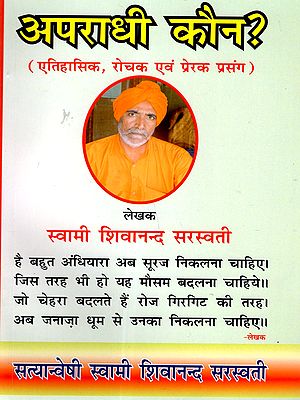 अपराधी कौन?
( एतिहासिक, रोचक एवं प्रेरक प्रसंग )
लेखक
स्वामी शिवानन्द सरस्वती
है बहुत अंधियारा अब सूरज निकलना चाहिए।
जिस तरह भी हो यह मौसम बदलना चाहिये॥
जो चेहरा बदलते हैं रोज गिरगिट की तरह।
अब जनाज़ा धूम से उनका निकलना चाहिए॥
-लेखक
सत्यान्वेषी स्वामी शिवानन्द सरस्वती